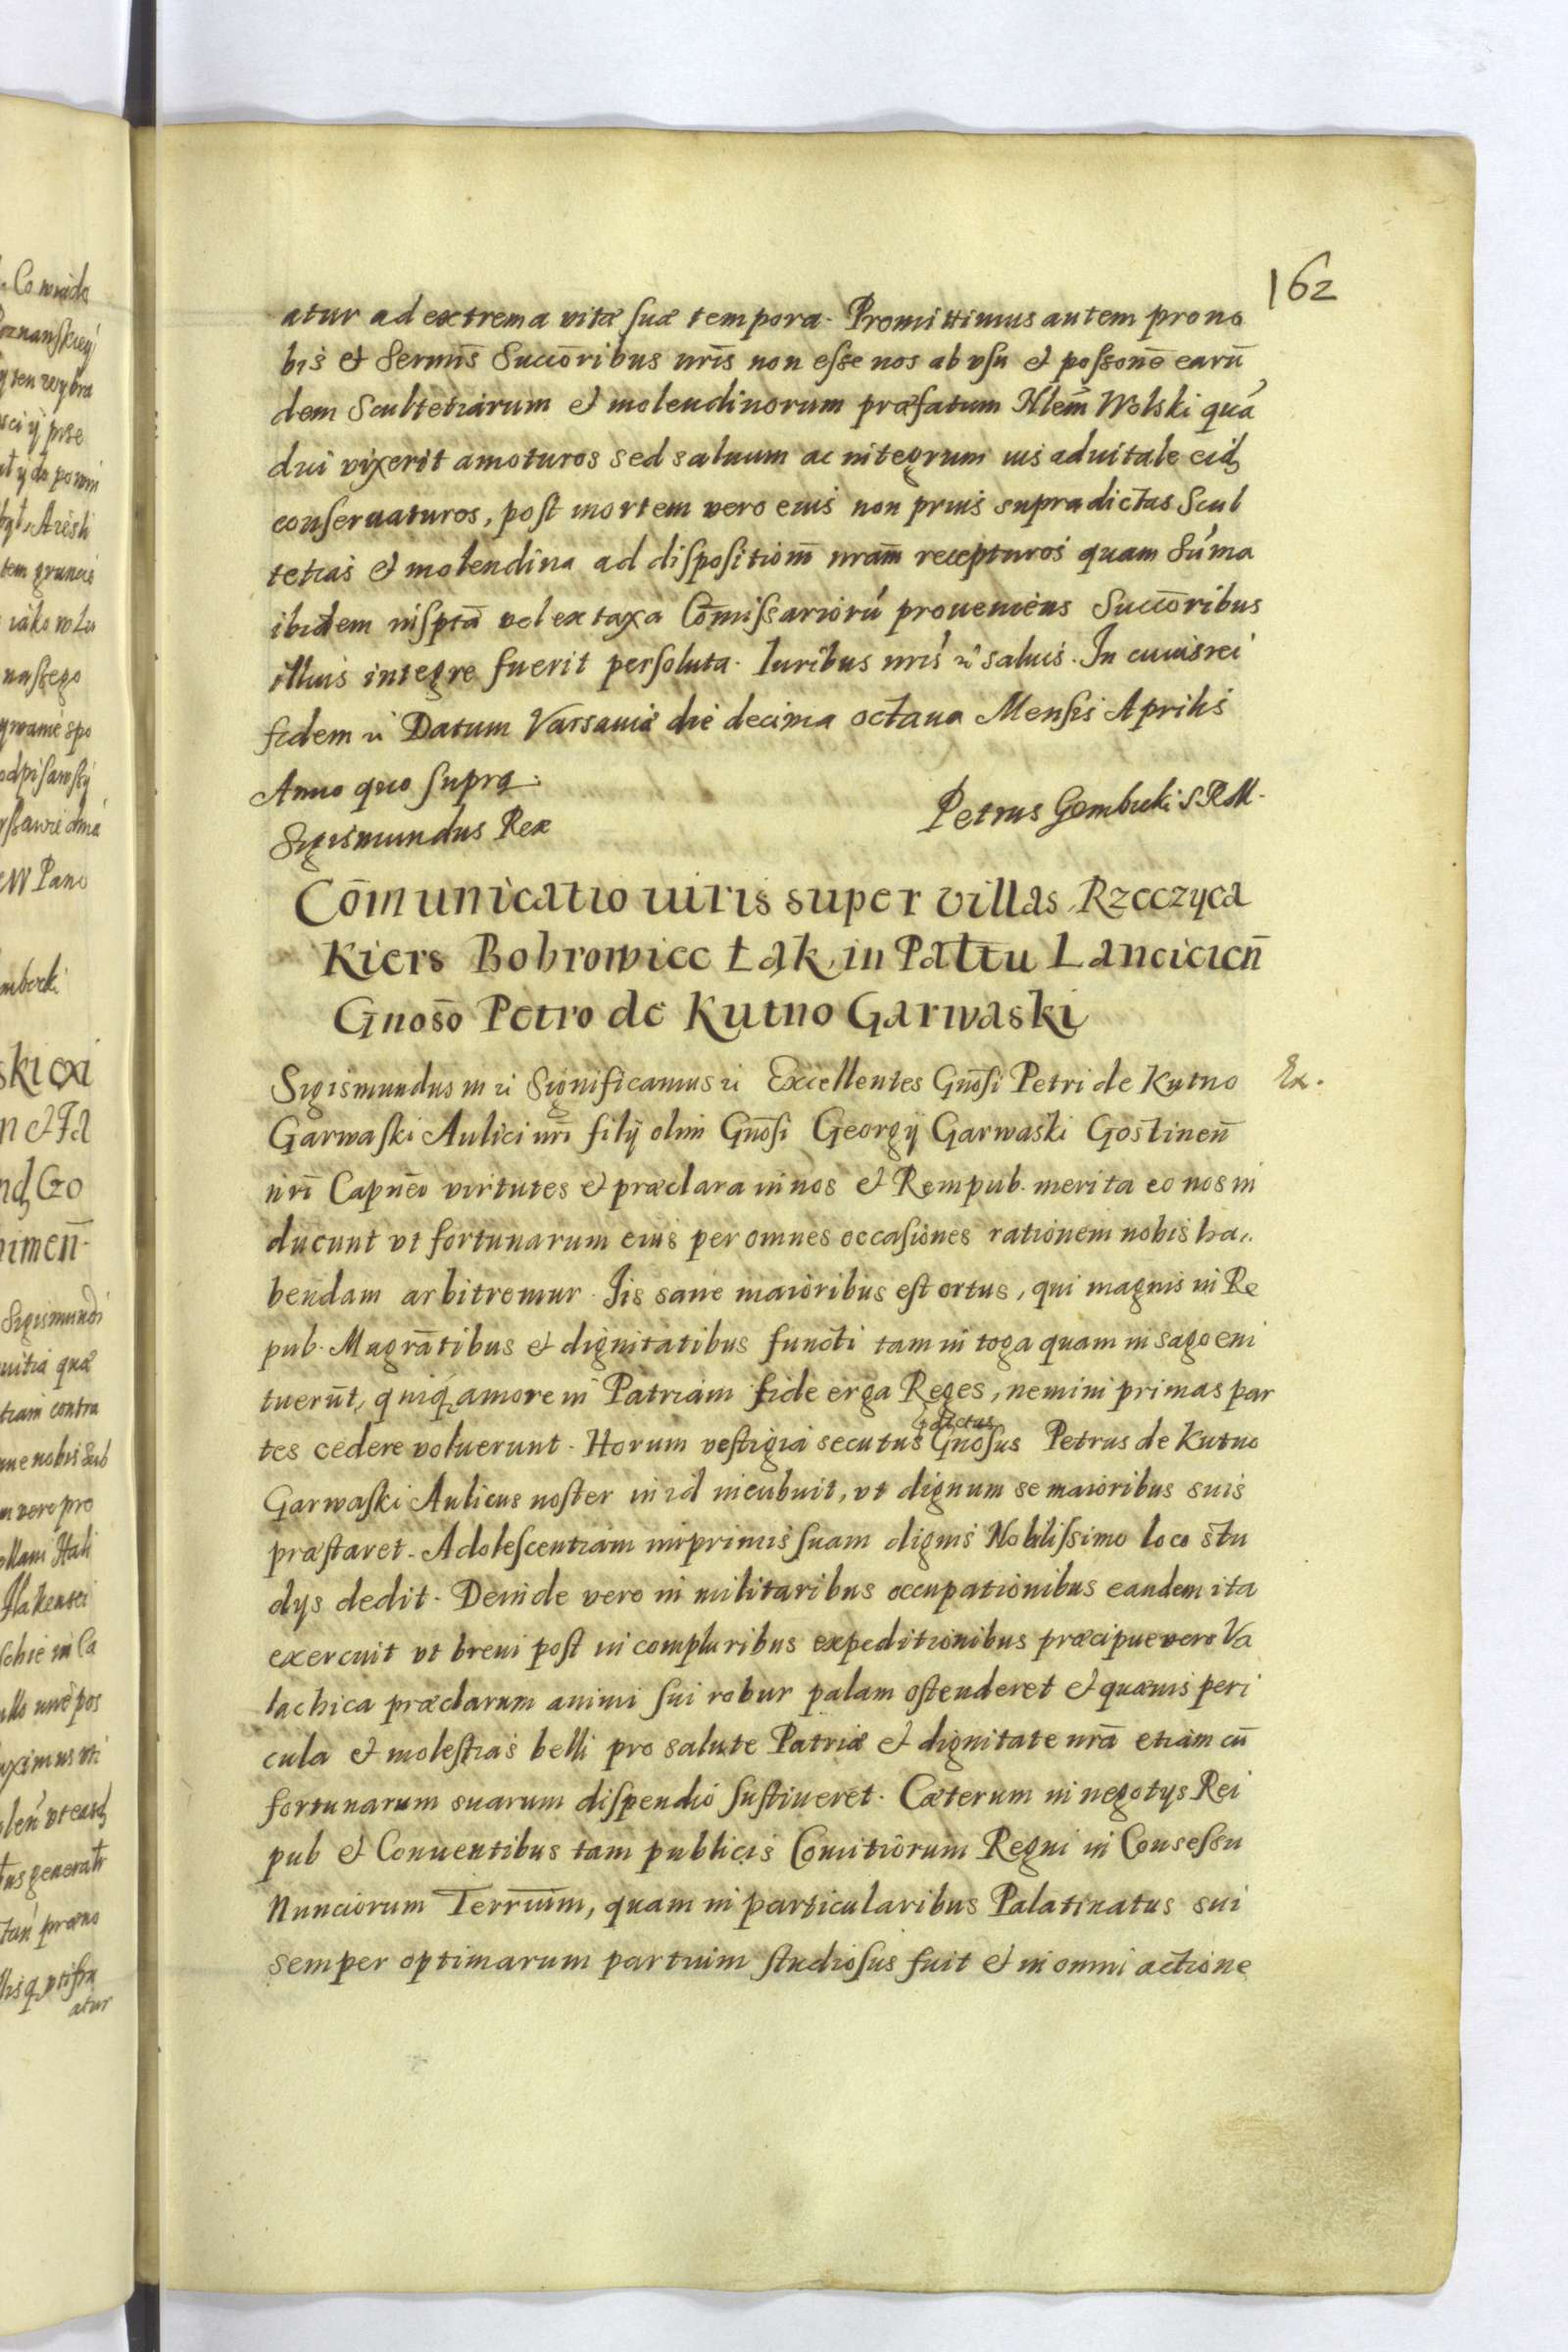 162
atur ad extrema vitæ suæ tempora. Promittimus autem pro no
bis et Sermis̄ Succōribus nr̄is non esse nos ab vsu et possonē earū
dem Scultetiarum et molendinorum præfatum Nlem̄ Wolski quá
diu vixerit amoturos sed saluum ac integrum ius aduitale eid
conseruaturos, post mortem vero eius non prius supradictas Scul
tetias et molendina ad dispositiom̄ nram̄ recepturos quam Súma
ibidem inscptā vel ex taxa Cōmissariorú proueniens Succōribus
illius integre fuerit persoluta. Iuribus nris̄ &c saluis. In cuius rei
fidem &c Datum Varsauiæ die decima octaua Mensis Aprilis
Anno quo supra.
Sigismundus Rex
Petrus Gembicki S. R. M.
Cōmunicatio iuris super villas Rzeczyca
Kiers Bobrowiec Łąk, in Pallttu Lancicień
Gnosō Petro de Kutno Garwaski
Sigismundus III &c Significamus &c Excellentes Gnōsi Petri de Kutno
Ex.
Garwaski Aulici nrī filij olim Gnōsi Georgij Garwaski Gostinen̄
nrī Capnēi virtutes et præclara in nos et Rempub. merita eo nos in
ducunt vt fortunarum eius per omnes occasiones rationem nobis ha,,
bendam arbitremur. Iis sane maioribus est ortus, qui magnis in Re
pub. Magrātibus et dignitatibus functi tam in toga quam in sago eni
tuerūt, quiq amore in Patriam fide erga Reges, nemini primas par
tes cedere voluerunt. Horum vestigia secutus Gnosus Petrus de Kutno
dictus
Garwaski Aulicus noster in id incubuit, vt dignum se maioribus suis
præstaret. Adolescentiam inprimis suam dignis Nobilissimo loco stu
dijs dedit. Deinde vero in militaribus occupationibus eandem ita
exercuit vt breui post in compluribus expeditionibus præcipue vero Va
lachica præclarum animi sui robur palam ostenderet et quæuis peri
cula et molestias belli pro salute Patriæ et dignitate nrā etiam cū
fortunarum suarum dispendio sustineret. Cæterum in negotijs Rei
pub et Conuentibus tam publicis Comitiorum Regni in Consessu
Nunciorum Terrium̄, quam in particularibus Palatinatus sui
semper optimarum partium studiosus fuit et in omni actione